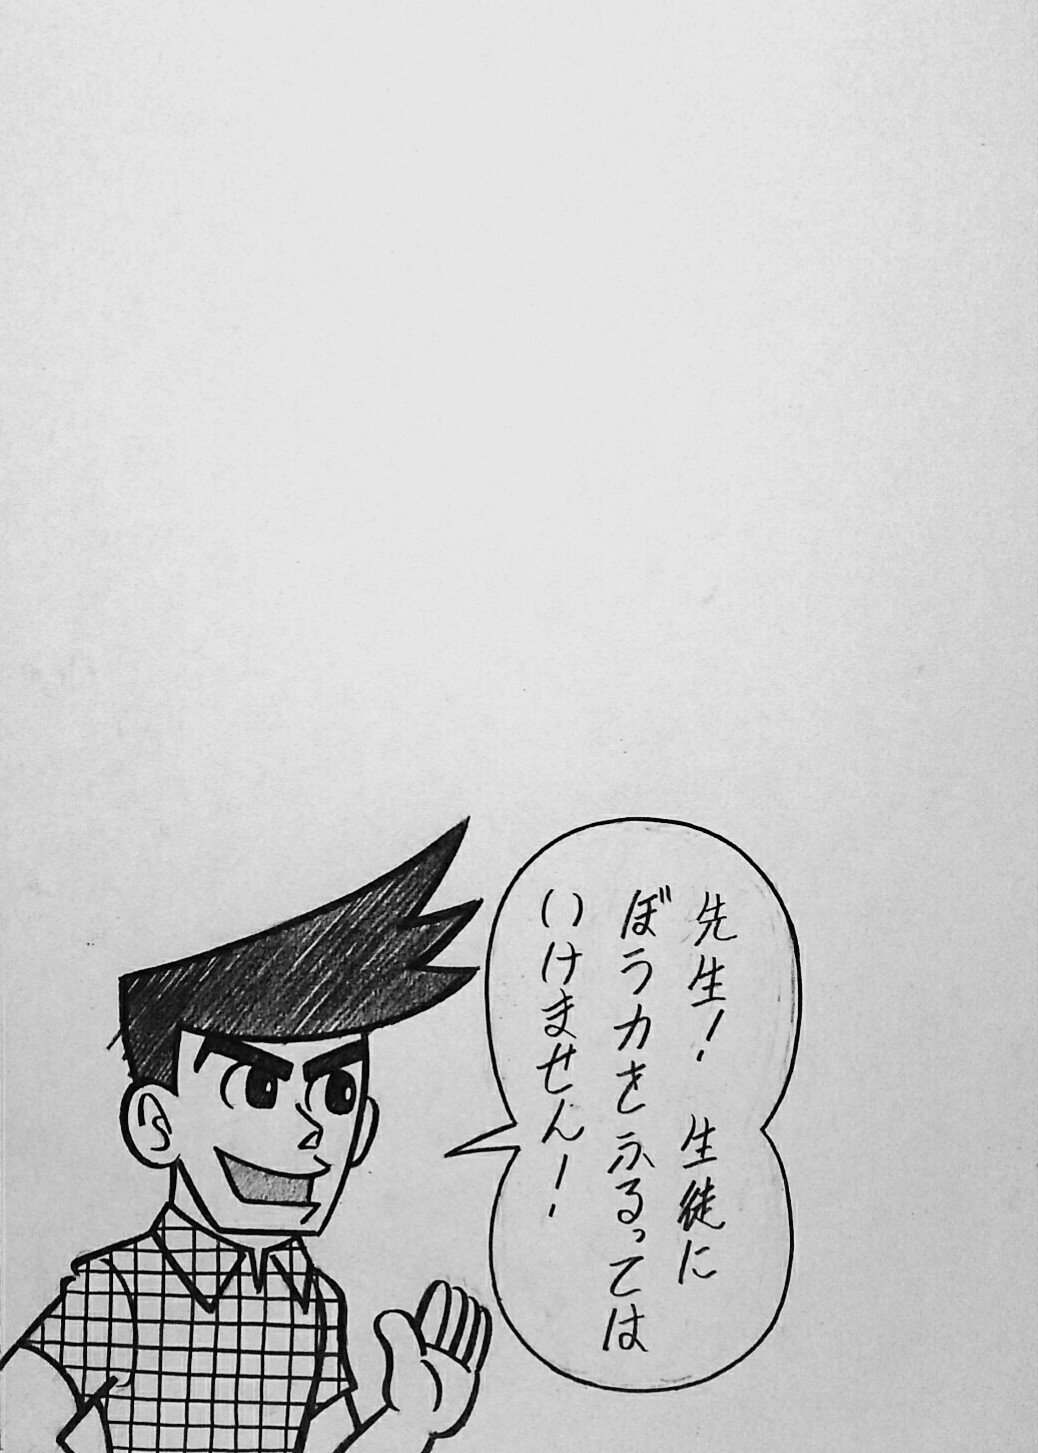 先生！　生徒に
ぼう力をふるっては
いけません！